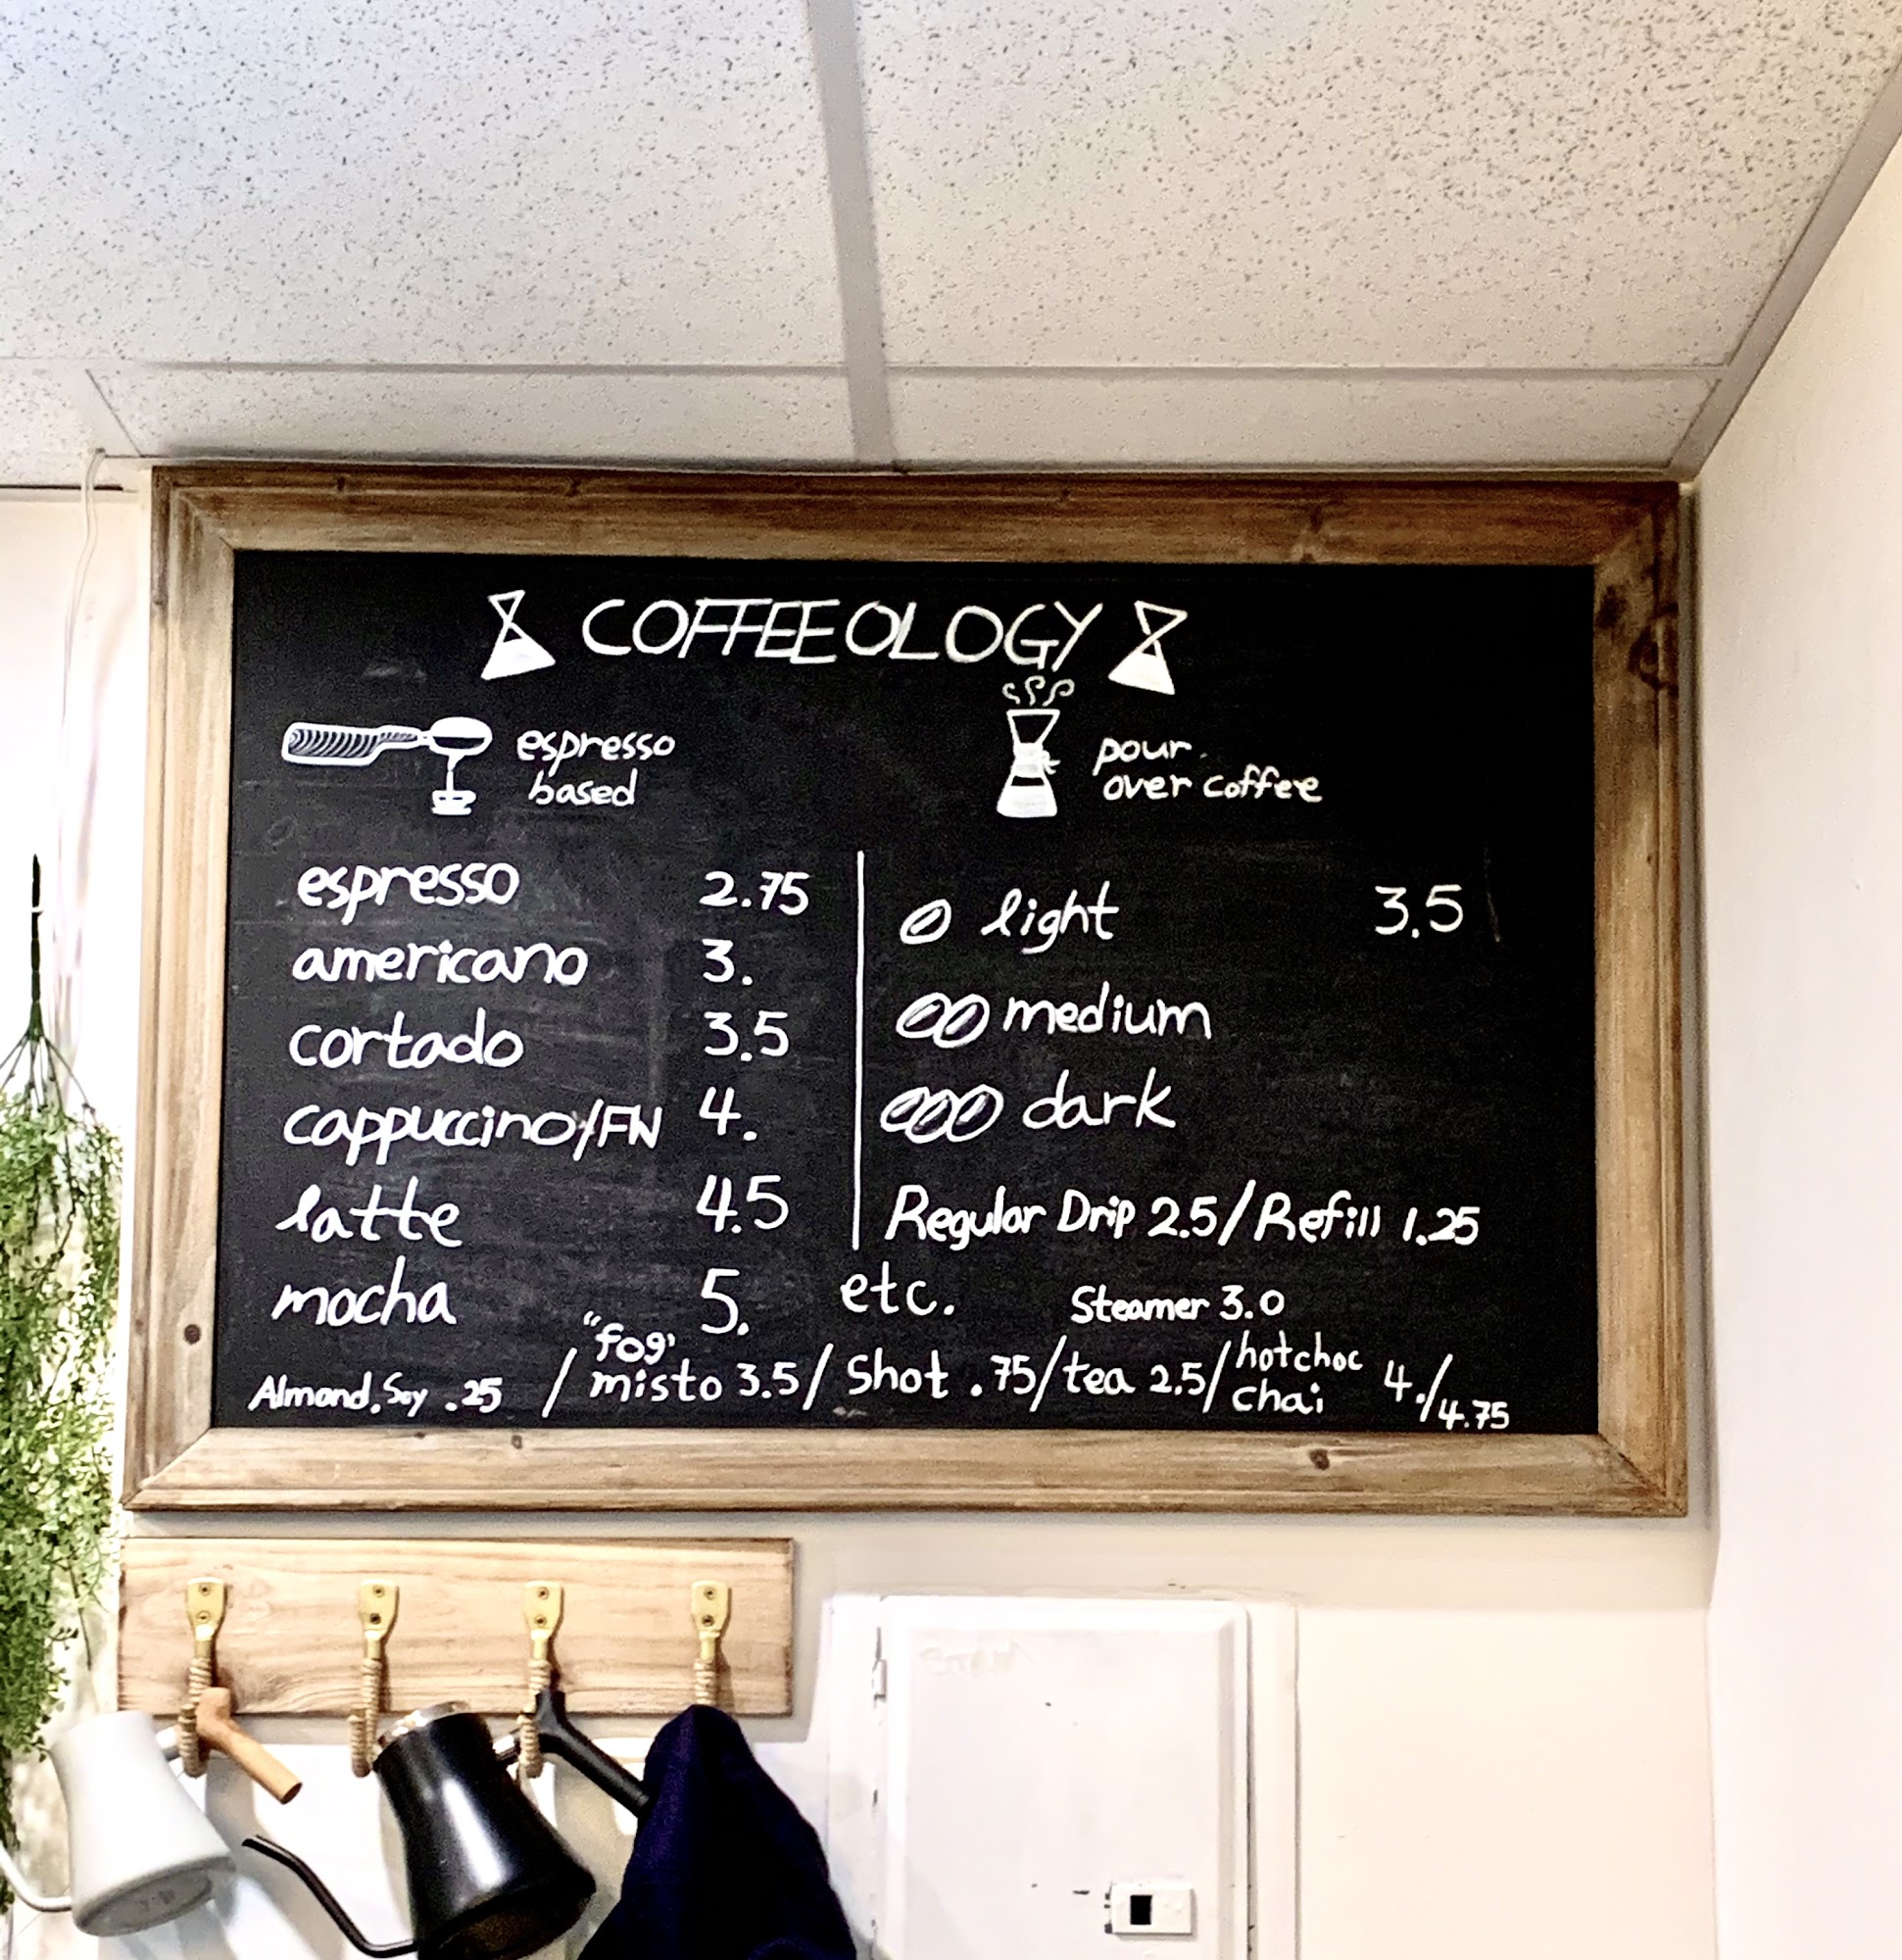 COFFEEOLOGY
espresso
based
espresso 2.75
americano 3.
cortado 3.5
cappuccino/FW 4.
latte 4.5
mocha 5.
pour
over coffee
light 3.5
medium
dark
Regular Drip 2.5/Refill 1.25
etc. Steamer 3.0
Almond.Soy .25 / "fog"
misto 3.5/ Shot .75/tea 2.5/hotchoc
chai 4./4.75